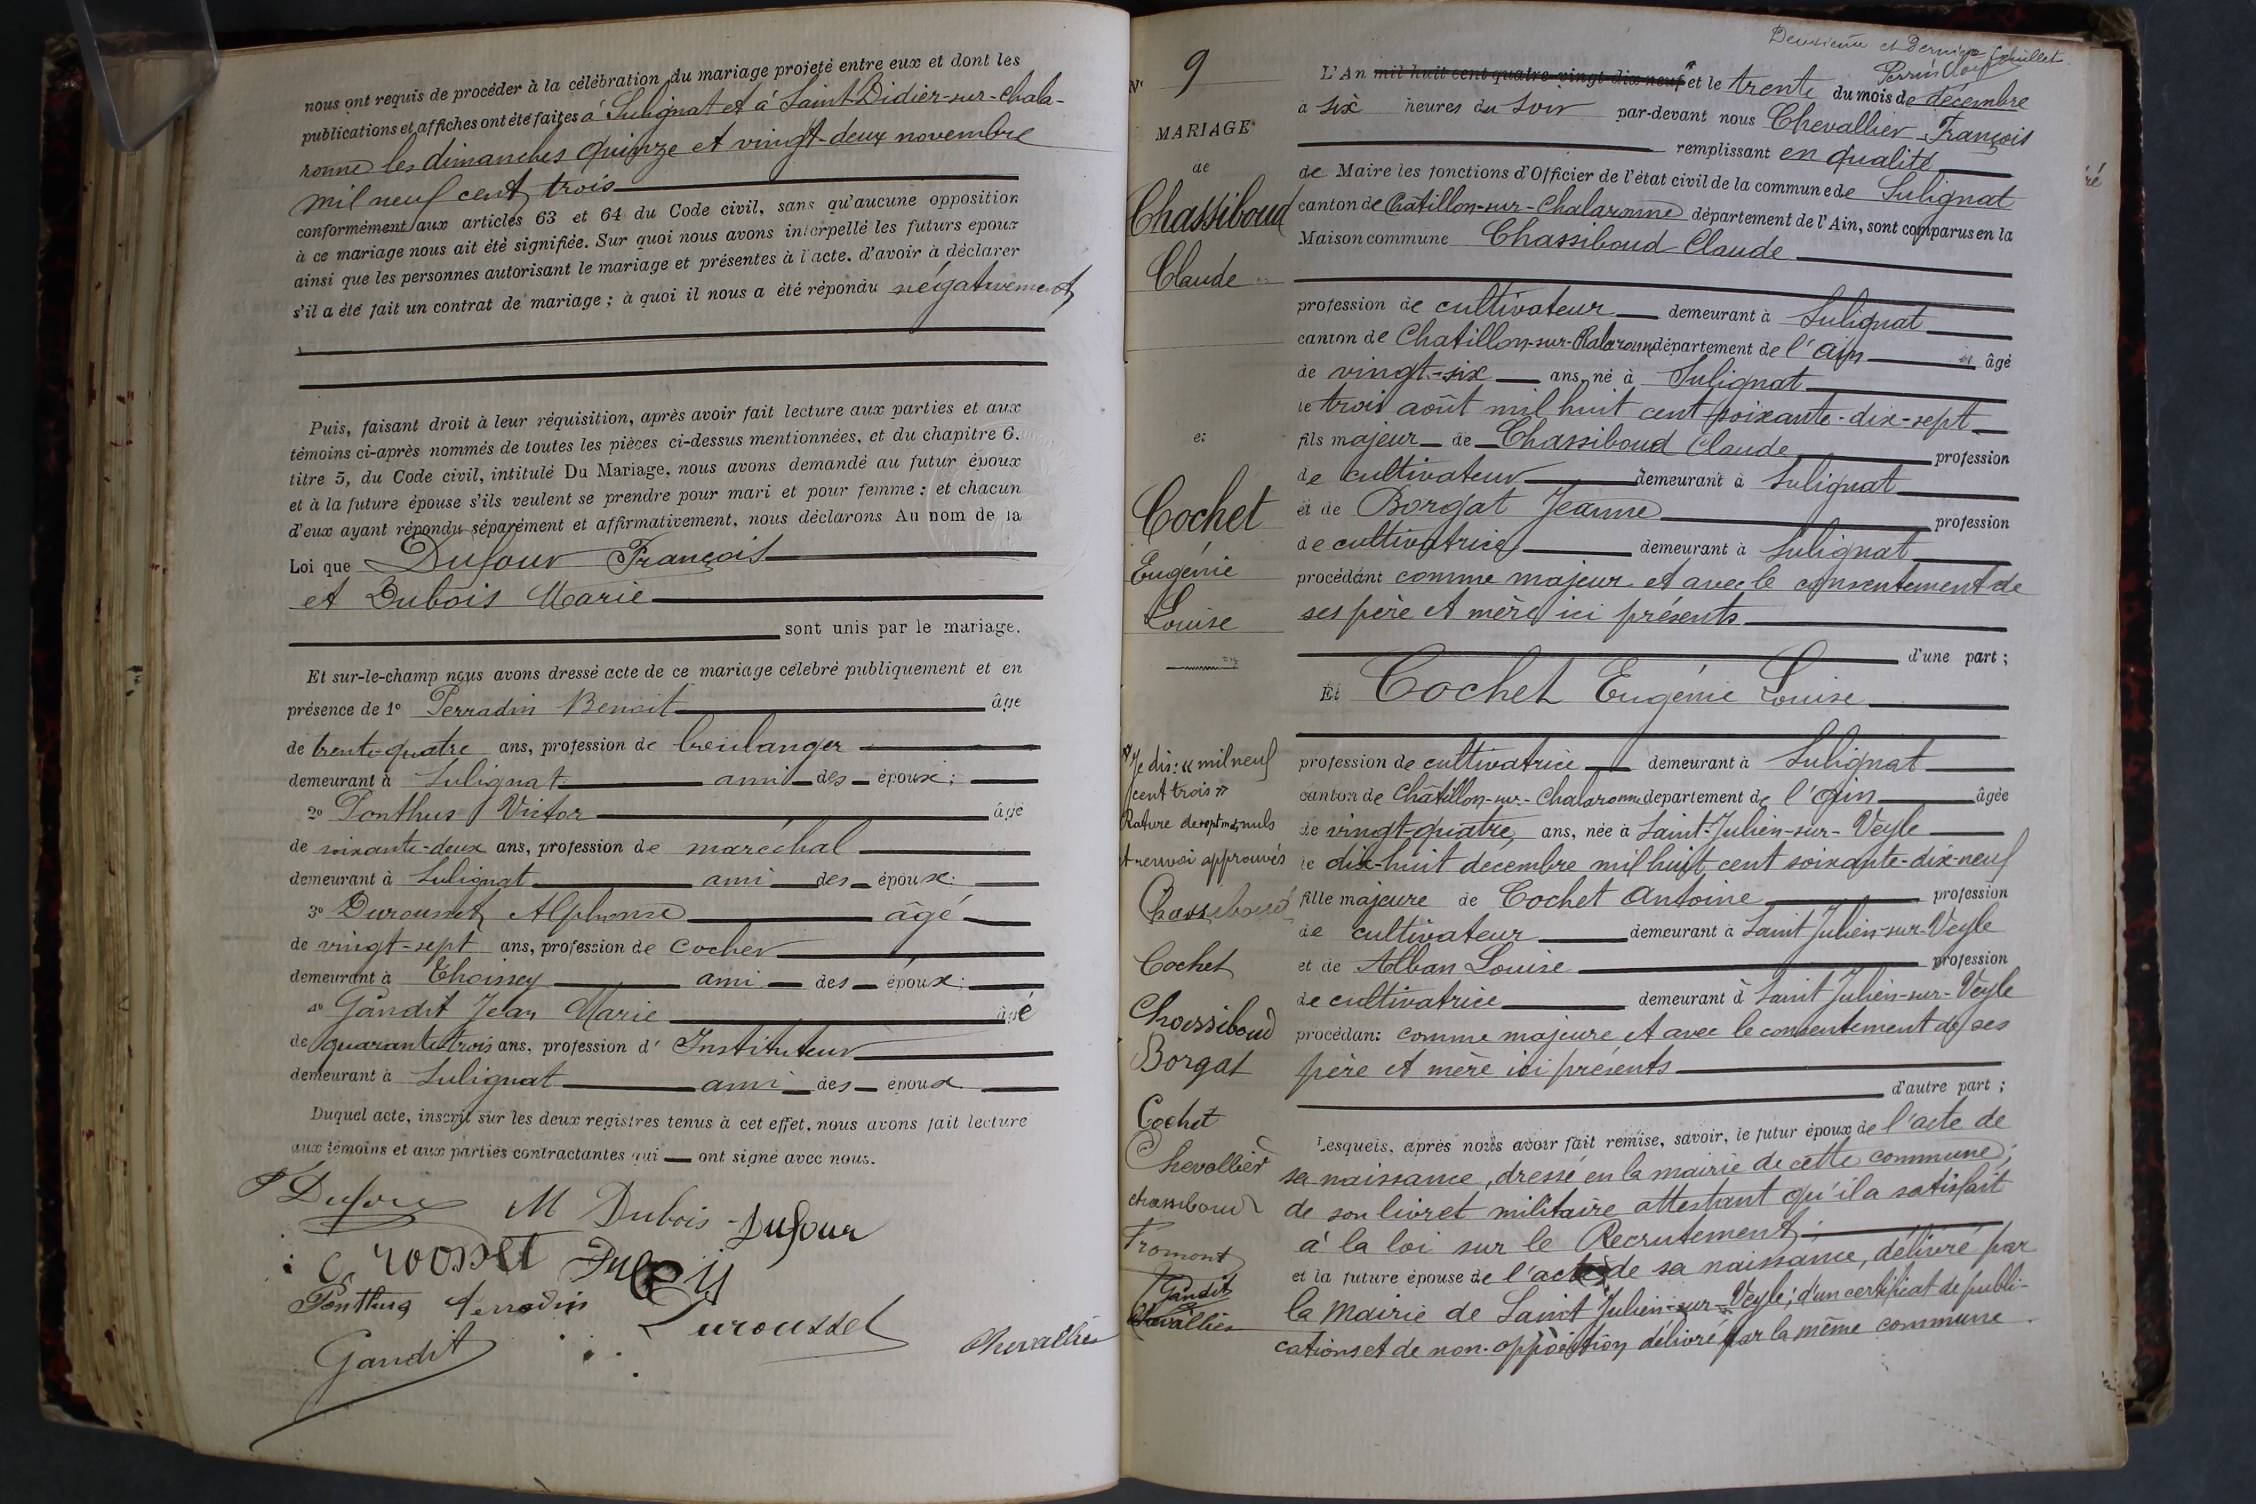 nous ont requis de procéder à la célébration du mariage projeté entre eux et dont les
publications et affiches ont été faites à Sulignat et à Saint-Didier-sur-Chala-
ronne les dimanches quinze et vingt-deux novembre
mil neuf cent trois
conformément aux articles 63 et 64 du Code civil, sans qu'aucune opposition
à ce mariage nous ait été signifiée. Sur quoi nous avons interpellé les futurs époux
ainsi que les personnes autorisant le mariage et présentes à l'acte, d'avoir à déclarer
s'il a été fait un contrat de mariage ; à quoi il nous a été répondu négativement
Puis, faisant droit à leur réquisition, après avoir fait lecture aux parties et aux
témoins ci-après nommés de toutes les pièces ci-dessus mentionnées, et du chapitre 6.
titre 5, du Code civil, intitulé Du Mariage, nous avons demandé au futur époux
et à la future épouse s'ils veulent se prendre pour mari et pour femme : et chacun
d'eux ayant répondu séparément et affirmativement, nous déclarons Au nom de la
Loi que Dufour François
et Dubois Marie
sont unis par le mariage.
Et sur-le-champ nous avons dressé acte de ce mariage célébré publiquement et en
présence de 1º Perradin Benoit âgé
de trente-quatre ans, profession de boulanger
demeurant à Sulignat ami des époux ;
2º Ponthus Victor âgé
de soixante-deux ans, profession de maréchal
demeurant à Sulignat ami des époux ;
3º Durousset Alphonse âgé
de vingt-sept ans, profession de cocher
demeurant à Thoissey ami des époux ;
4º Gandit Jean Marie âgé
de quarante trois ans, profession d' Instituteur
demeurant à Sulignat ami des époux
Duquel acte, inscrit sur les deux registres tenus à cet effet, nous avons fait lecture
aux témoins et aux parties contractantes qui ont signé avec nous.
F Dufour M Dubois Dufour
Ponthus Perradin Durousset
Gandit Chevallier
Deuxième et dernier feuillet
Nº 9
MARIAGE
de
Chassiboud
Claude
et
Cochet
Eugénie
Louise
* Je dis : « mil neuf
cent trois »
Rature de sept mots nuls
et renvoi approuvés
Chassiboud
Cochet
Chassiboud
Borgat
Cochet
Chevallier
Chassiboud
Fromont
Gandit
Chevallier
L'An mil huit cent quatre-vingt-dix-neuf * et le trente du mois de décembre
à six heures du soir par-devant nous Chevallier François
remplissant en qualité
de Maire les fonctions d'Officier de l'état civil de la commune de Sulignat
canton de Châtillon-sur-Chalaronne département de l'Ain, sont comparus en la
Maison commune Chassiboud Claude
profession de cultivateur demeurant à Sulignat
canton de Chatillon-sur-Chalaronne département de l'Ain âgé
de vingt-six ans, né à Sulignat
le trois août mil huit cent soixante-dix-sept
fils majeur de Chassiboud Claude profession
de cultivateur demeurant à Sulignat
et de Borgat Jeanne profession
de cultivatrice demeurant à Sulignat
procédant comme majeur et avec le consentement de
ses père et mère ici présents
d'une part ;
Et Cochet Eugénie Louise
profession de cultivatrice demeurant à Sulignat
canton de Châtillon-sur-Chalaronne département de l'Ain âgée
de vingt-quatre ans, née à Saint-Julien-sur-Veyle
le dix-huit décembre mil huit cent soixante-dix-neuf
fille majeure de Cochet Antoine profession
de cultivateur demeurant à Saint Julien-sur-Veyle
et de Alban Louise profession
de cultivatrice demeurant à Saint Julien-sur-Veyle
procédant comme majeure et avec le consentement de ses
père et mère ici présents
d'autre part ;
Lesquels, après nous avoir fait remise, savoir, le futur époux de l'acte de
sa naissance, dressé en la mairie de cette commune ;
de son livret militaire attestant qu'il a satisfait
à la loi sur le Recrutement ;
et la future épouse de l'acte de sa naissance, délivré par
la Mairie de Saint Julien-sur-Veyle ; d'un certificat de publi-
cations et de non-opposition délivré par la même commune